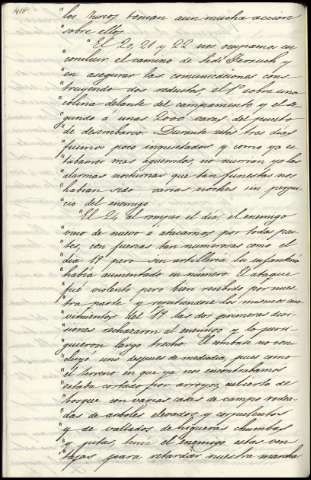 418
"los Turcos toman aun mucha accion
"sobre ellos.
" El 20, 21 y 22 nos ocupamos en
"concluir el camino de Sidi Ferruch y
"en asegurar las comunicaciones cons
"truyendo dos reductos, el 1º sobre una
"colina delante del campamento y el se
"gundo á unas 2000 varas del punto
"de desembarco. Durante estos tres dias
"fuimos poco inquietados y como ya es
"tabamos mas aguerridos, no ocurrian ya las
"alarmas nocturnas que tan funestas nos
"habian sido varias noches sin prove
"cia del enemigo.
" El 24 al romper el dia, el enemigo
"vino de nuevo á atacarnos por todas par
"tes, con fuerzas tan numerosas como el
"dia 19 pero sin artilleria. La infanteria
"habia aumentado en número. El ataque
"fué violento pero bien recibido por nues
"tra parte y repitiendose los mismos mo
"vimientos del 19 las dos primeras divi
"siones rechazaron al enemigo y lo persi
"guieron largo trecho. El combate no con
"cluyó sino despues de mediodia, pues como
"el terreno en que ya nos encontrabamos
"estaba cortado por arroyos, cubierto de
"bosque con varias casas de campo rodea
"das de arboles elevados y corpulentos
"y de vallados de higueras chumbas
"y pitas, tenia el enemigo estas ven
"tajas para retardar nuestra marcha